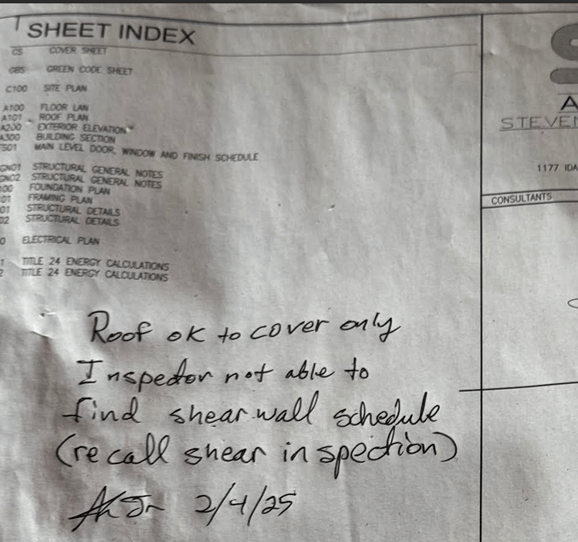 SHEET INDEX
CS COVER SHEET
GBS GREEN CODE SHEET
C100 SITE PLAN
A100 FLOOR LAN
A101 ROOF PLAN
A200 EXTERIOR ELEVATION
A300 BUILDING SECTION
MAIN LEVEL DOOR, WINDOW AND FINISH SCHEDULE
STRUCTURAL GENERAL NOTES
STRUCTURAL GENERAL NOTES
FOUNDATION PLAN
FRAMING PLAN
STRUCTURAL DETAILS
STRUCTURAL DETAILS
ELECTRICAL PLAN
TITLE 24 ENERGY CALCULATIONS
TITLE 24 ENERGY CALCULATIONS
Roof ok to cover only
Inspector not able to
find shear wall schedule
(recall shear inspection)
2/4/25
S
A
STEVEN
1177 IDA
CONSULTANTS